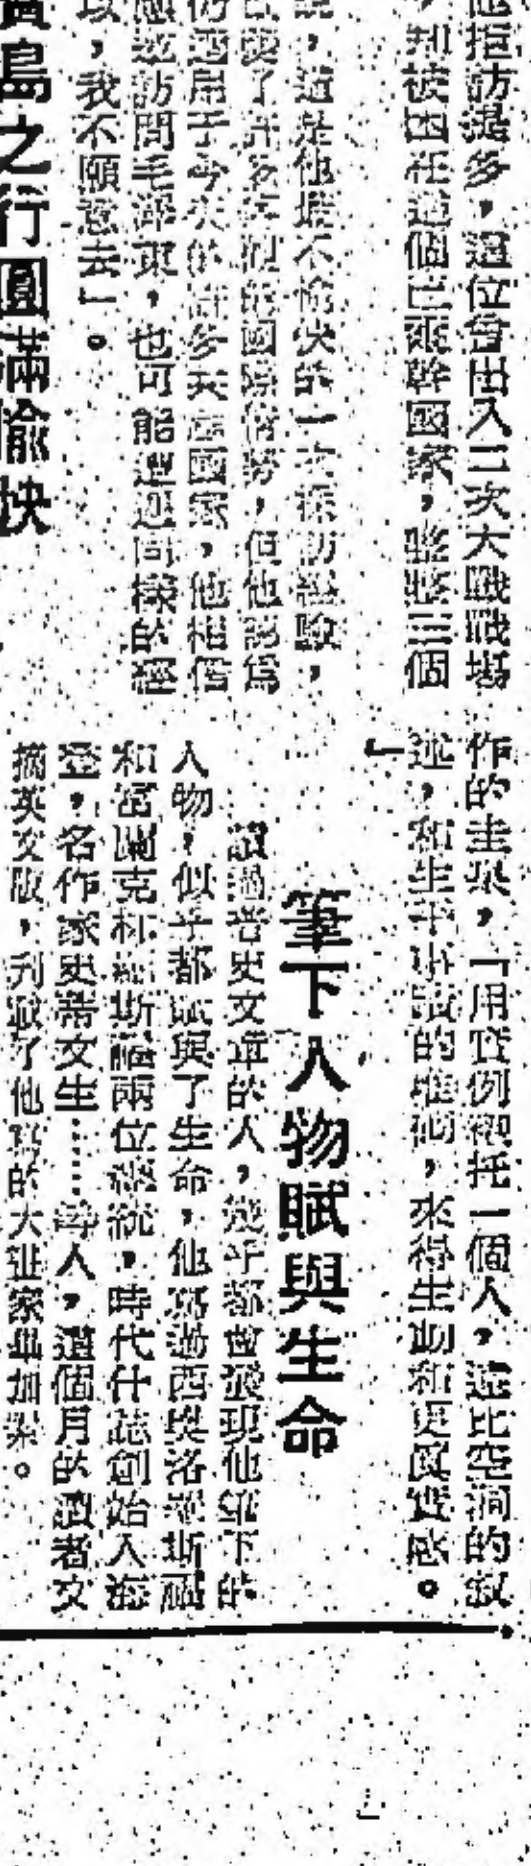 他拒訪最多，這位曾出入二次大戰戰場
，却被囚在這個巴爾幹國家，整整三個
說，這是他最不愉快的一次採訪經驗，
改變了許多的國際情勢，但他認為
仍適用于今天的許多共產國家，他相信
訪問毛澤東，也可能遭遇同樣的經
以，我不願意去」。
寶島之行圓滿愉快
作的圭臬，「用實例襯托一個人，遠比空洞的敘
述，和生平事蹟的堆砌，來得生動和更眞實感。
」
筆下人物賦與生命
讀過普史文章的人，幾乎都會發現他筆下的
人物，似乎都賦與了生命，他寫過西奧洛羅斯福
和富蘭克林羅斯福兩位總統，時代什誌創始人海
登，名作家史蒂文生……等人，這個月的讀者文
摘英文版，刋載了他寫的大畫家畢加索。